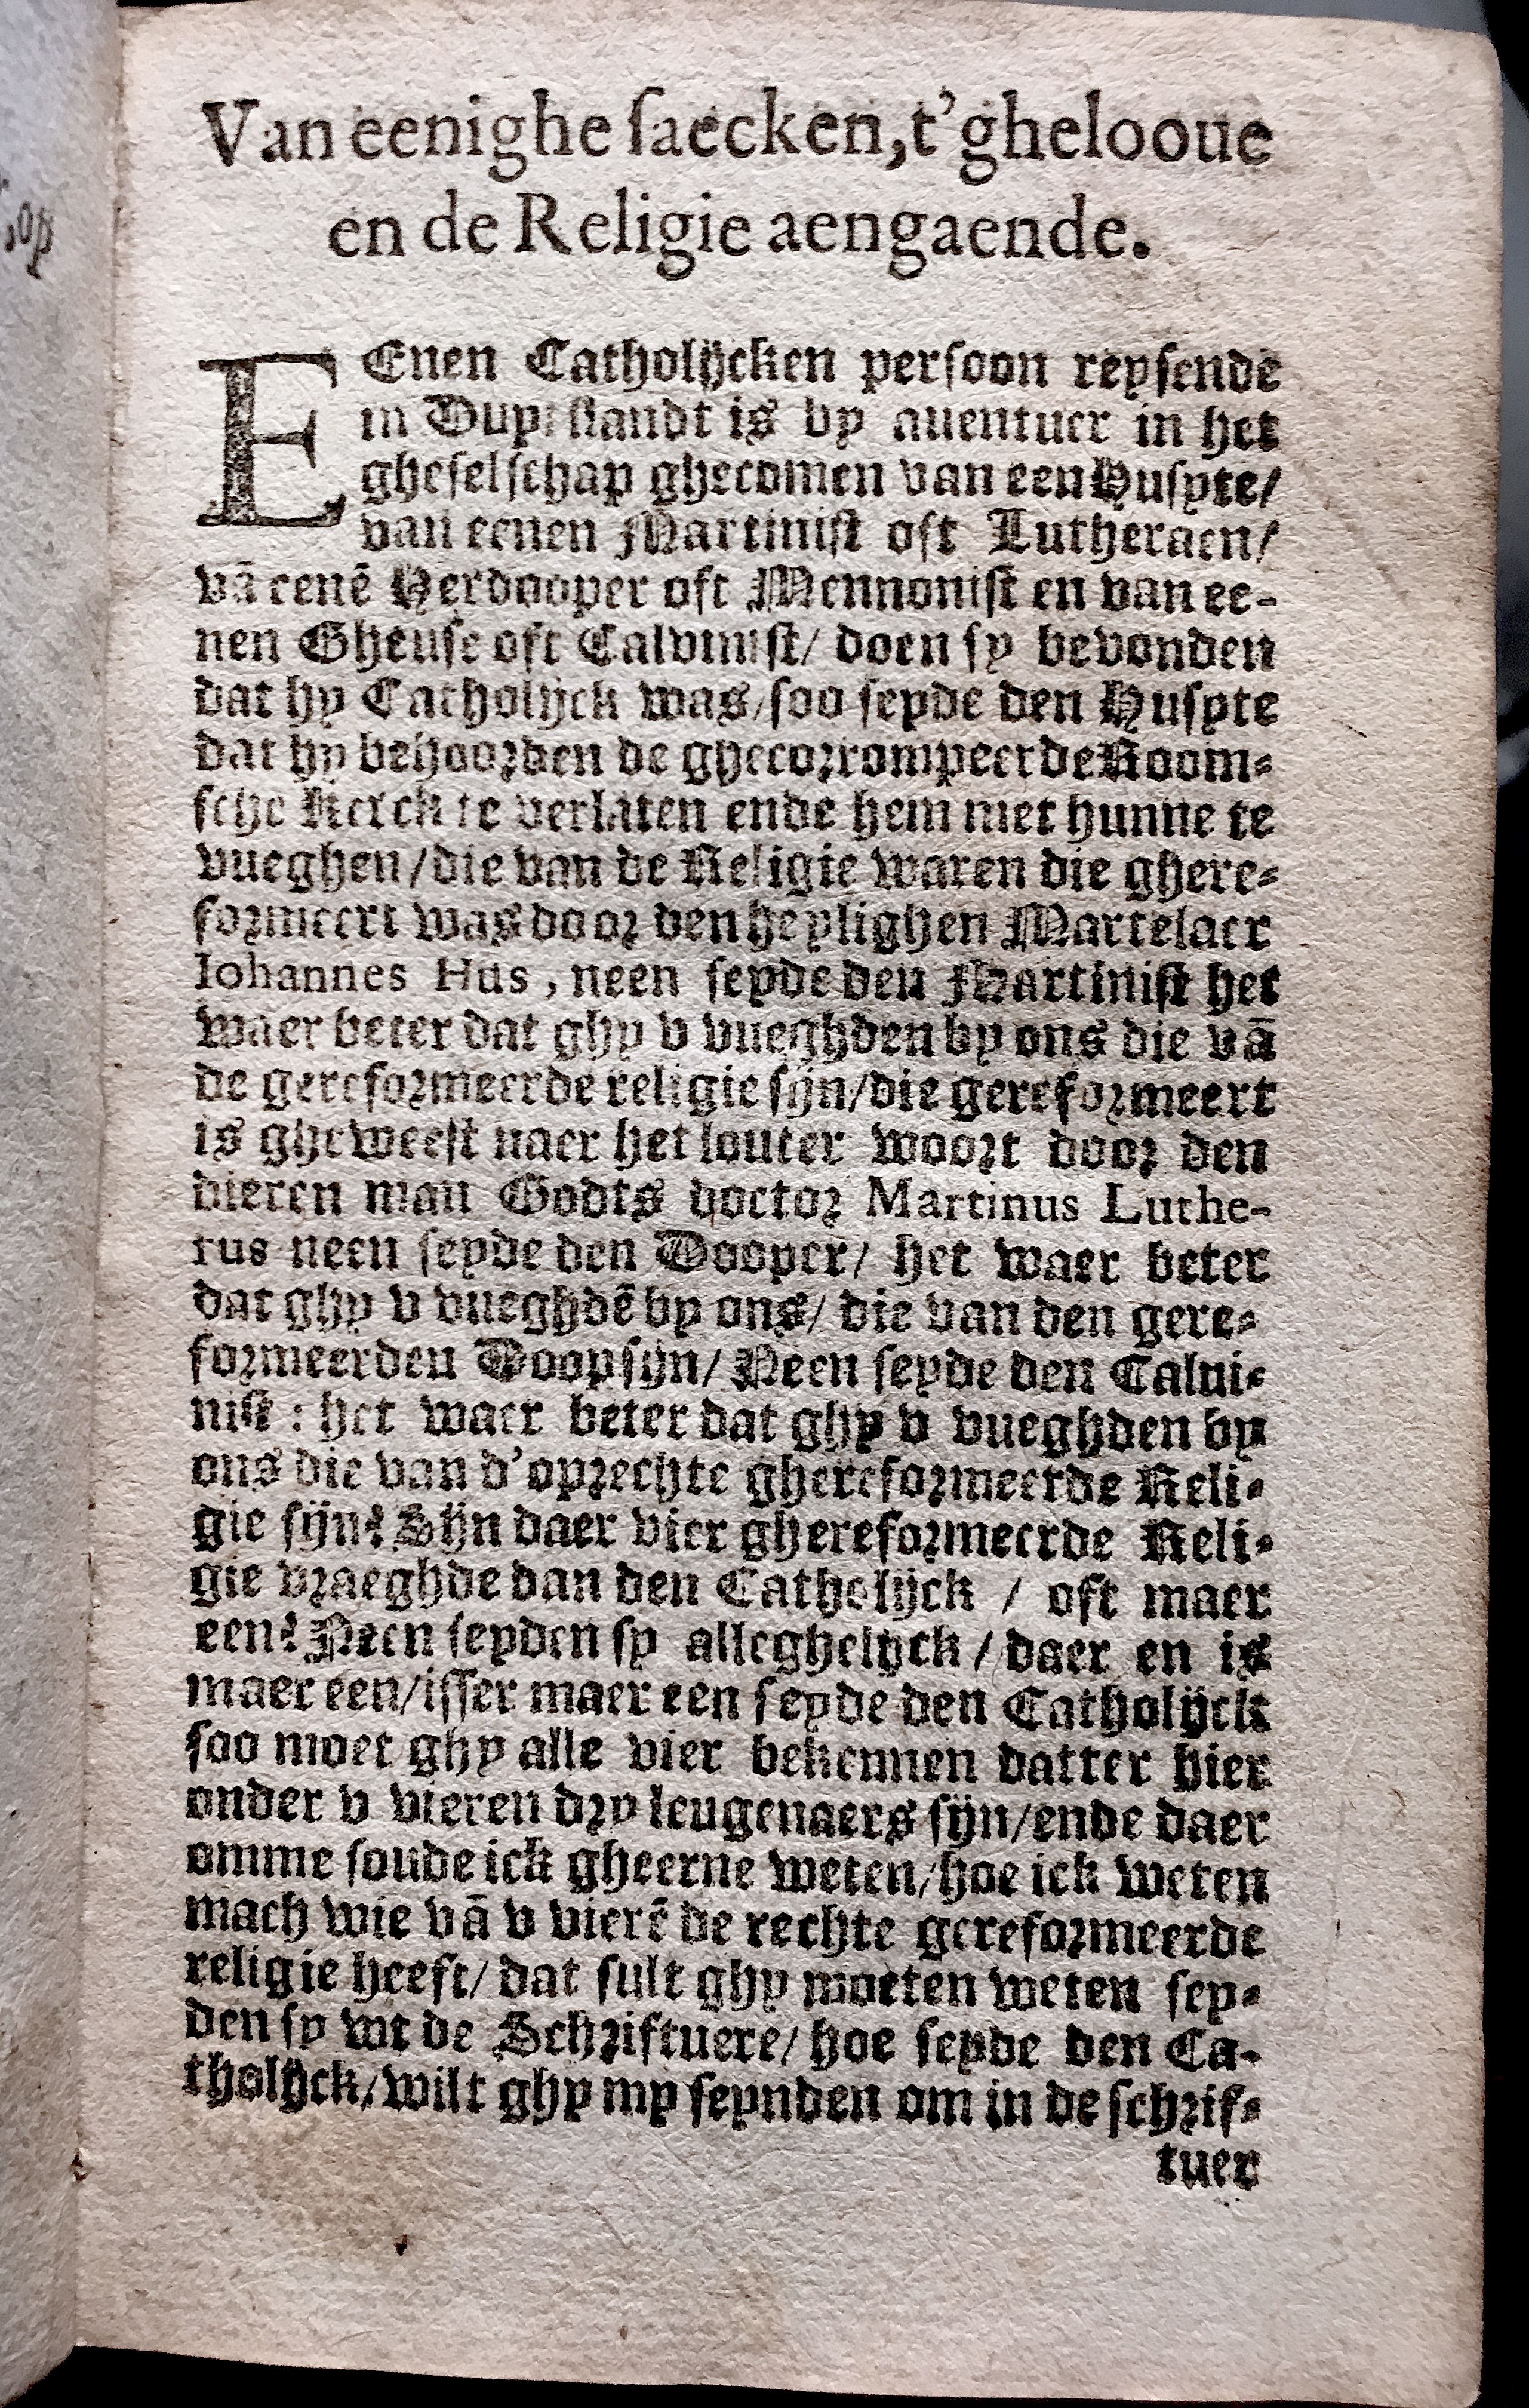 Van eenighe saecken, t'ghelooue
en de Religie aengaende.
EEnen Catholijcken persoon reysende
in Duytslandt is by auentuer in het
gheselschap ghecomen van een Husyte/
van eenen Martinist oft Lutheraen/
vā eenē Herdooper oft Mennonist en van ee-
nen Gheuse oft Calvinist/ doen sy bevonden
dat hy Catholijck was/ soo seyde den Husyte
dat hy behoorden de ghecorrompeerde Room-
sche Kerck te verlaten ende hem met hunne te
vueghen/ die van de Religie waren die ghere-
formeert was door den heylighen Martelaer
Iohannes Hus, neen seyde den Martinist het
waer beter dat ghy v vueghden by ons die vā
de gereformeerde religie sijn/ die gereformeert
is gheweest naer het louter woort door den
dieren man Godts doctor Martinus Luthe-
rus neen seyde den Dooper/ het waer beter
dat ghy v vueghdē by ons/ die van den gere-
formeerden Doop sijn/ Neen seyde den Calui-
nist: het waer beter dat ghy v vueghden by
ons die van d'oprechte ghereformeerde Reli-
gie sijn? Sijn daer vier ghereformeerde Reli-
gie vraeghde dan den Catholijck / oft maer
een? Neen seyden sy alleghelyck / daer en is
maer een/ isser maer een seyde den Catholijck
soo moet ghy alle vier bekennen datter hier
onder v vieren dry leugenaers sijn/ ende daer
omme soude ick gheerne weten/ hoe ick weten
mach wie vā v vierē de rechte gereformeerde
religie heeft/ dat sult ghy moeten weten sey-
den sy wt de Schriftuere/ hoe seyde den Ca-
tholijck/ wilt ghy my seynden om in de schrif-
tuer